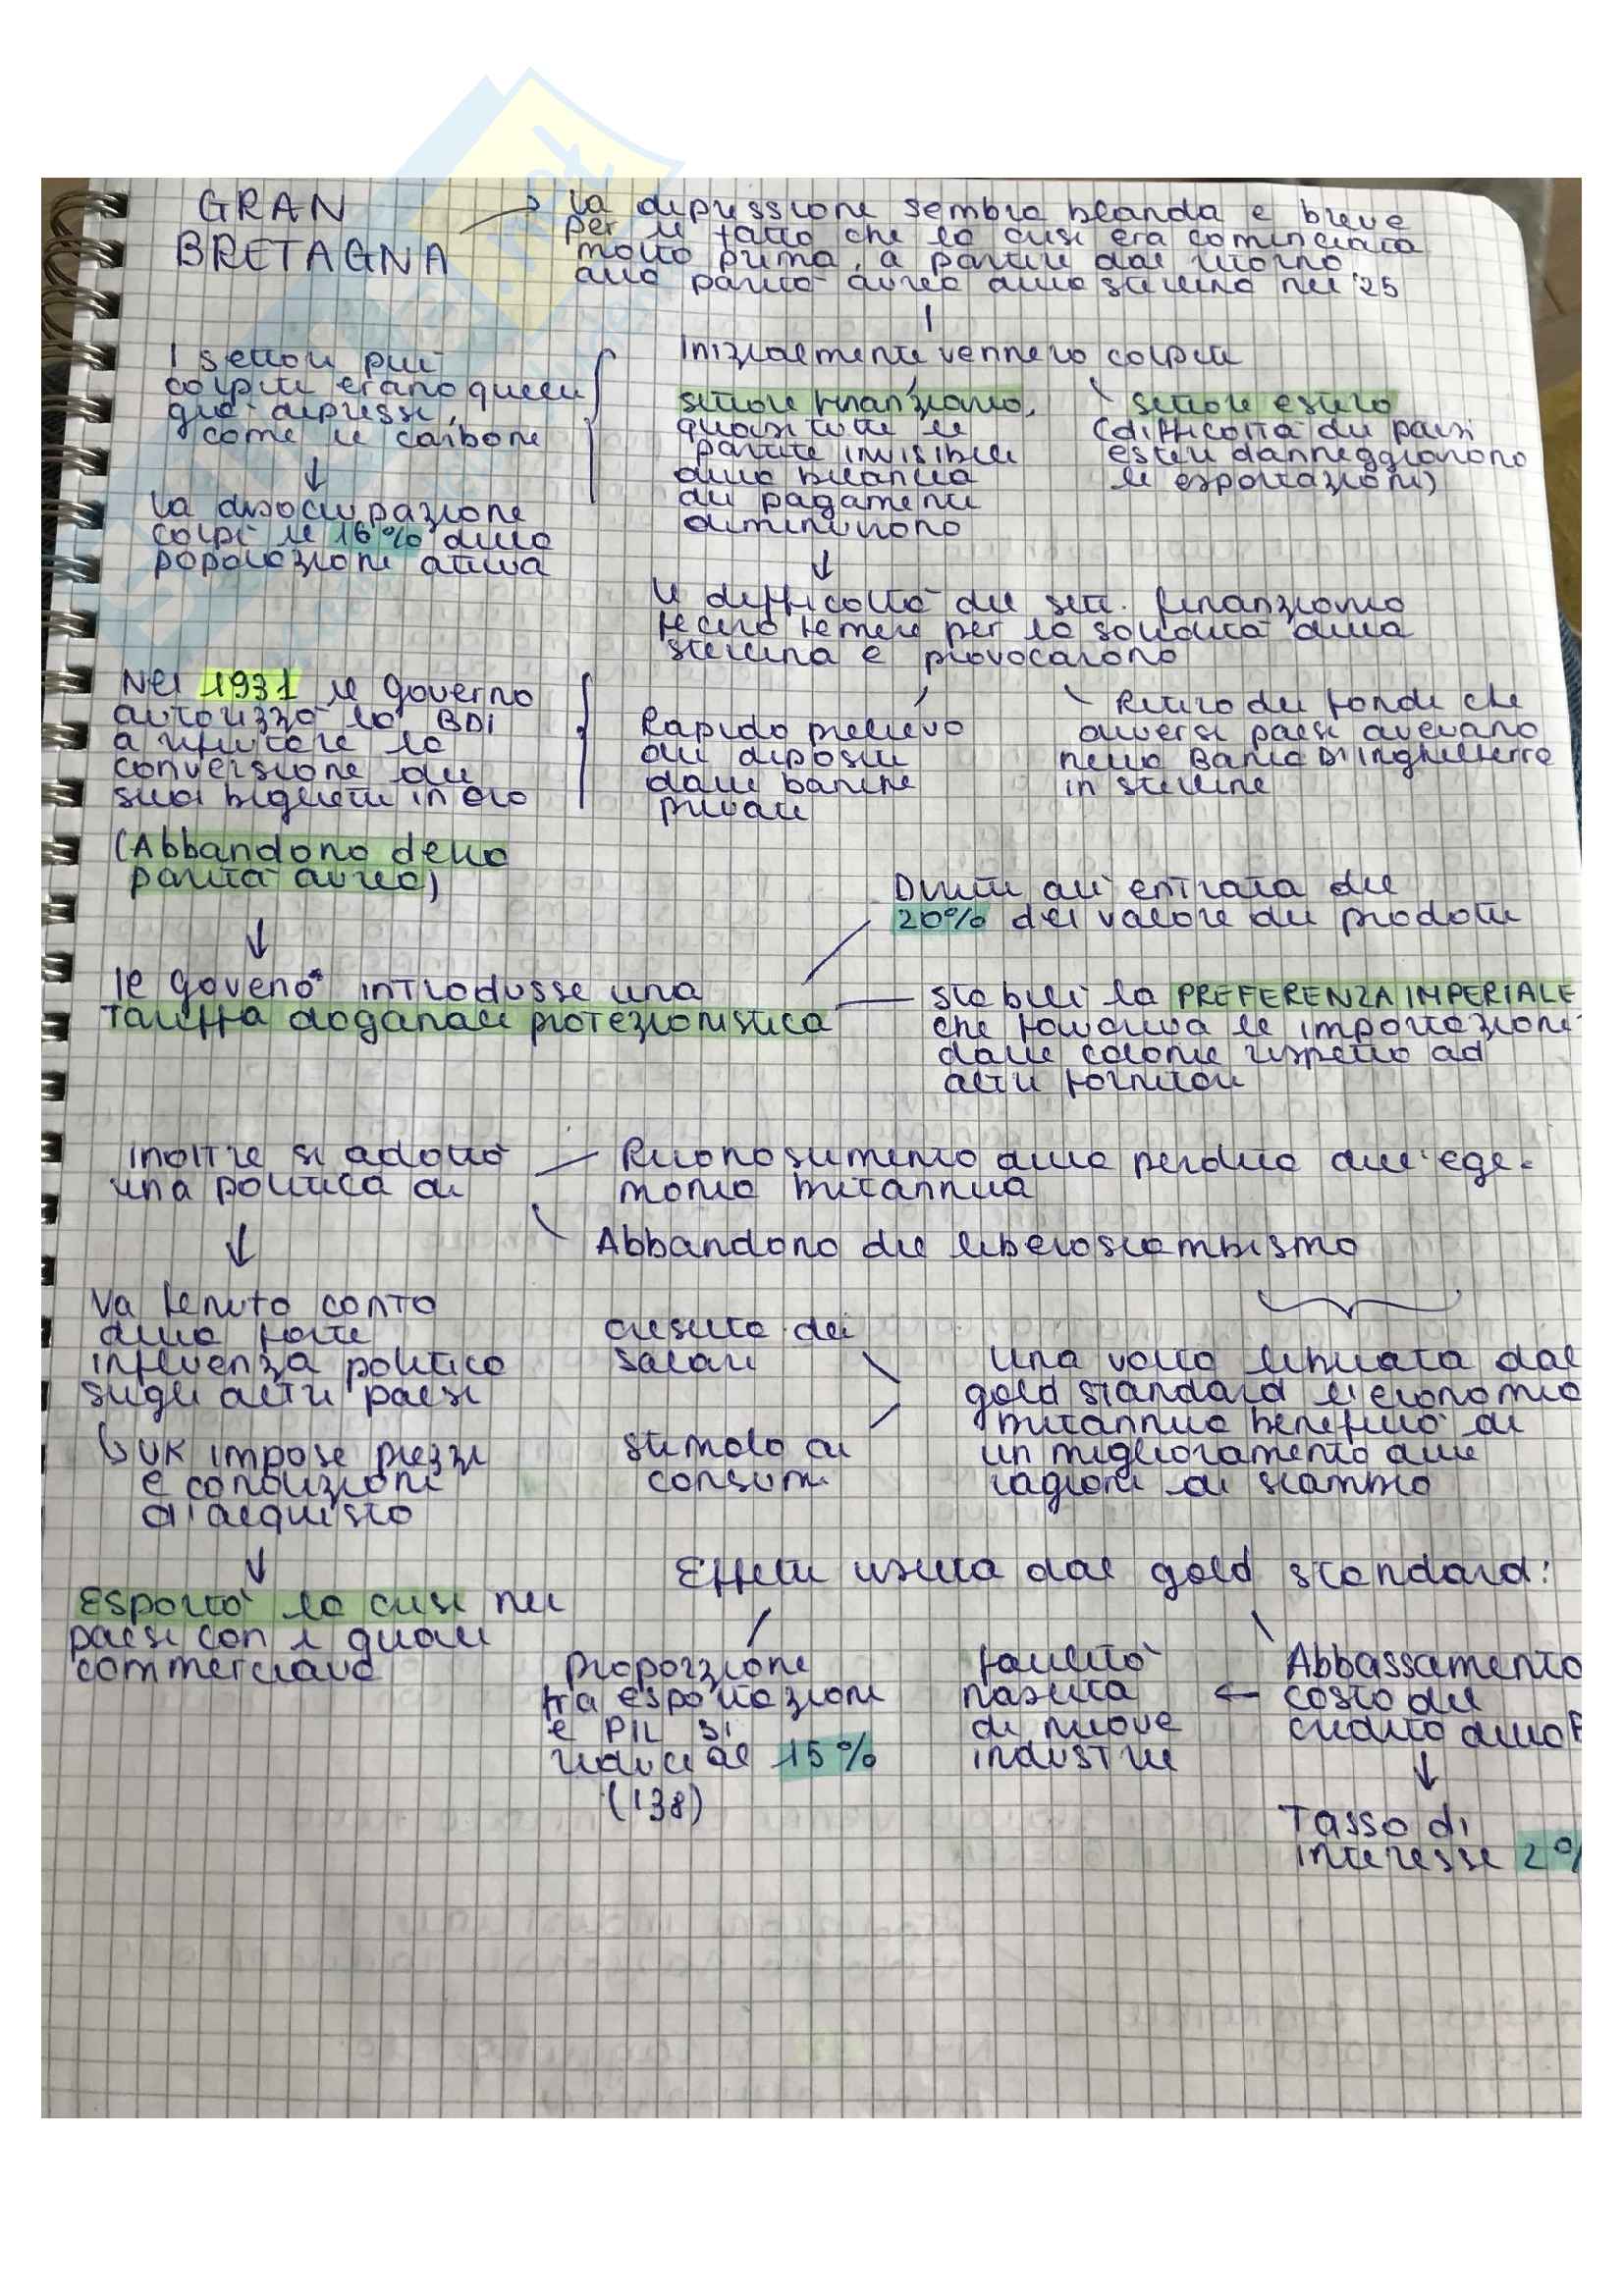 GRAN
BRETAGNA
la depressione sembra blanda e breve
per il fatto che la crisi era cominciata
molto prima, a partire dal ritorno
alla parità aurea della sterlina nel '25
Inizialmente vennero colpiti
I settori più
colpiti erano quelli
già depressi,
come il carbone
settore finanziario,
quasi tutte le
partite invisibili
della bilancia
dei pagamenti
diminuirono
settore estero
(difficoltà dei paesi
esteri danneggiarono
le esportazioni)
la disoccupazione
colpì il 16% della
popolazione attiva
le difficoltà del sett. finanziario
fecero temere per la solidità della
sterlina e provocarono
Nel 1931 il governo
autorizzò la BDI
a rifiutare la
conversione dei
suoi biglietti in oro
Rapido prelievo
dei depositi
dalle banche
private
Ritiro dei fondi che
diversi paesi avevano
nella Banca D'Inghilterra
in sterline
(Abbandono della
parità aurea)
Diritti all'entrata del
20% del valore dei prodotti
Il goveno introdusse una
tariffa doganale protezionistica
stabilì la PREFERENZA IMPERIALE
che favoriva le importazioni
dalle colonie rispetto ad
altri fornitori
inoltre si adottò
una politica di
Riconoscimento della perdita dell'ege-
monia britannica
Abbandono del liberoscambismo
Va tenuto conto
della forte
influenza politica
sugli altri paesi
crescita dei
salari
una volta liberata dal
gold standard l'economia
britannica beneficiò di
un miglioramento delle
ragioni di scambio
UK impose prezzi
e condizioni
d'acquisto
stimolo ai
consumi
Effetti uscita dal gold standard:
Esportò la crisi nei
paesi con i quali
commerciava
Proporzione
tra esportazioni
e PIL si
riduce al 15%
(138)
facilitò
nascita
di nuove
industrie
Abbassamento
costo del
credito della
Tasso di
interesse 2%